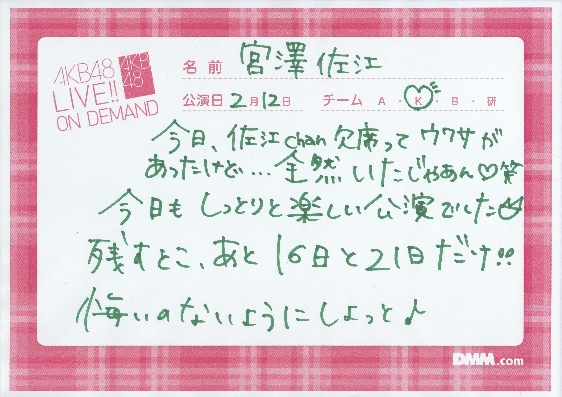 AKB48
LIVE!!
ON DEMAND
AKB
48
名前 宮澤佐江
公演日 2月12日 チーム A・K・B・研
今日、佐江chan欠席ってウワサが
あったけど…全然いたじゃあん♡笑
今日もしっとりと楽しい公演でした
残すとこ、あと16日と21日だけ!!
悔いのないようにしよっと♪
DMM.com